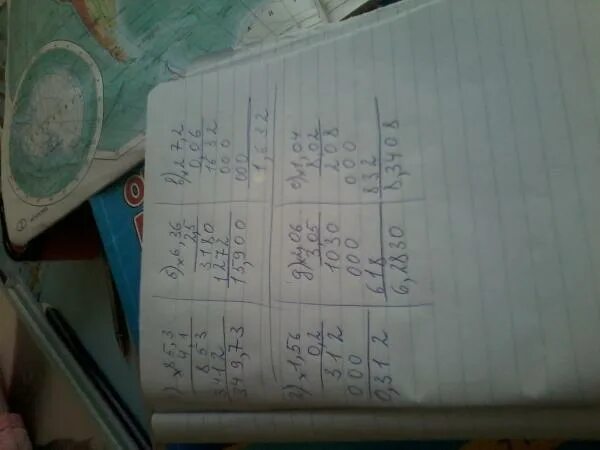 ) x 85,3
4,1
853
3412
349,73
б) x 6,36
25
3180
1272
15,900
в) x 27,2
0,06
1632
000
000
1,632
г) x 1,56
0,2
312
000
0,312
д) x 2,06
3,05
1030
000
618
6,2830
е) x 1,04
8,02
208
000
832
8,3408